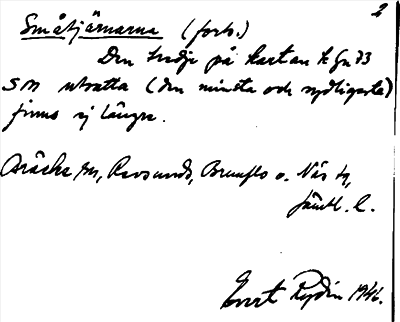 2
Småtjärnarna (forts.)
Den tredje på kartan k Gn 73
som utsatta (den minsta och sydligaste)
finns ej längre.
Bräcke sn, Revsunds, Brunflo o. Näs tg,
Jämtl. l.
Evert Rydin 1946.